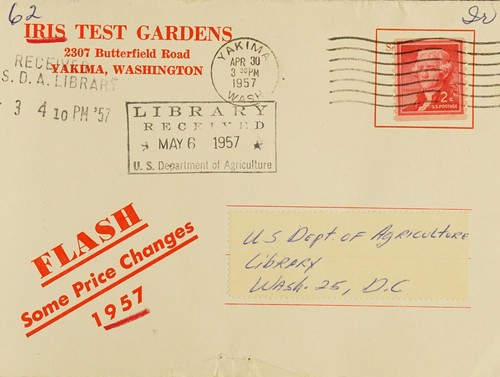 62
Ir
IRIS TEST GARDENS
2307 Butterfield Road
YAKIMA, WASHINGTON
RECEIVED
S. D. A. LIBRARY
3 4 10 PM '57
YAKIMA
APR 30
3 30 PM
1957
WASH.
2¢
U.S. POSTAGE
LIBRARY
RECEIVED
★ MAY 6 1957 ★
U. S. Department of Agriculture
FLASH
Some Price Changes
1957
U.S Dept. of Agriculture
Library
Wash. 25, D.C